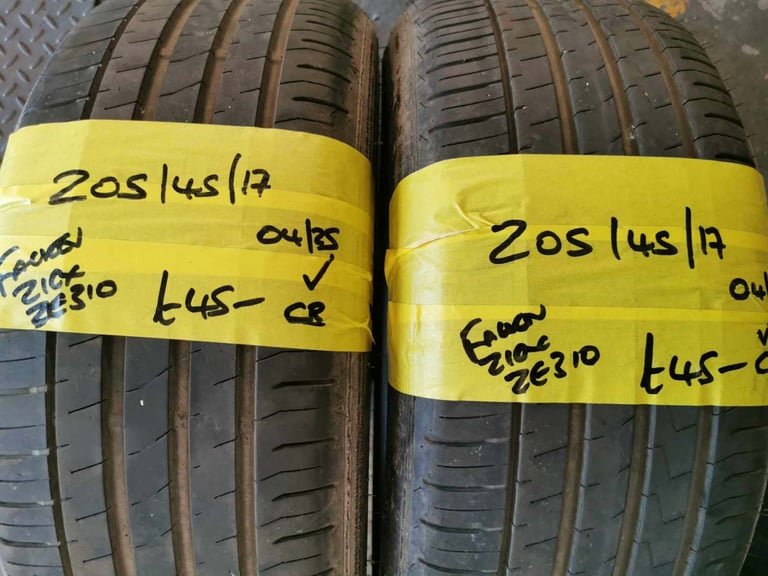 205/45/17
04/25
✓
FALKEN
ZIEX
ZE310
£45-
CB
205/45/17
04/
FALKEN
ZIEX
ZE310
£45-